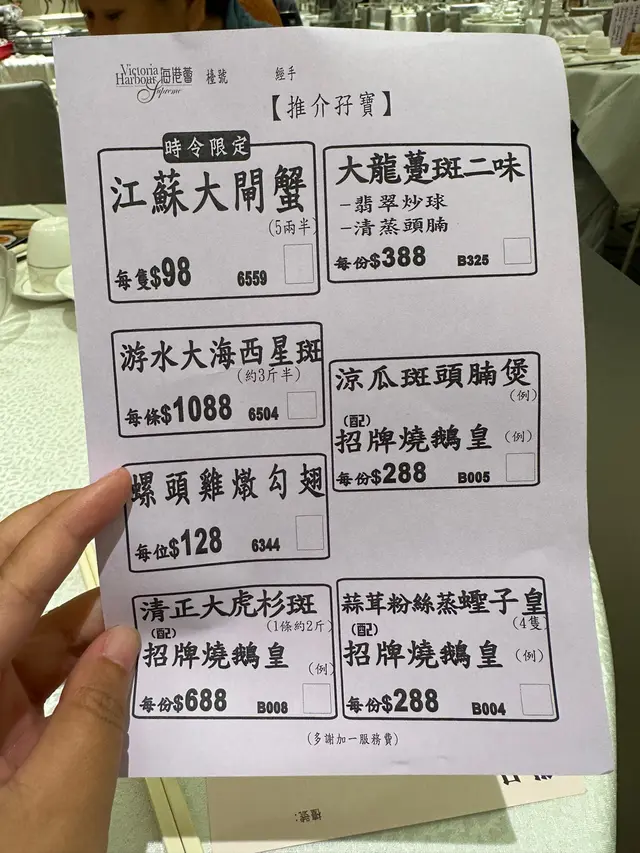 Victoria
Harbour 海港薈
Supreme
檯號
經手
【推介孖寶】
時令限定
江蘇大閘蟹
(5兩半)
每隻$98 6559
大龍躉斑二味
-翡翠炒球
-清蒸頭腩
每份$388 B325
游水大海西星斑
(約3斤半)
每條$1088 6504
涼瓜斑頭腩煲
(例)
(配)
招牌燒鵝皇 (例)
每份$288 B005
螺頭雞燉勾翅
每位$128 6344
清正大虎杉斑
(1條約2斤)
(配)
招牌燒鵝皇 (例)
每份$688 B008
蒜茸粉絲蒸蟶子皇
(4隻)
(配)
招牌燒鵝皇 (例)
每份$288 B004
(多謝加一服務費)
檯號: